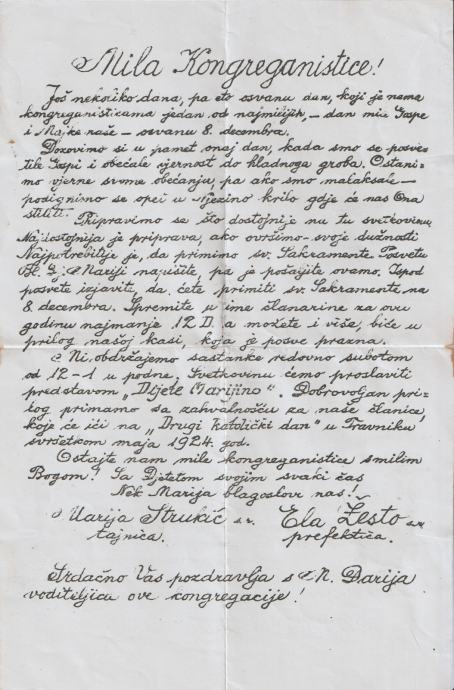 Mila Kongreganistice!
Još nekoliko dana, pa eto osvanu dan, koji je nama
kongreganisticama jedan od najmilijih, – dan mile Gospe
i Majke naše – osvanu 8. decembra.
Dozovimo si u pamet onaj dan, kada smo se posve-
tile Gospi i obećale vjernost do hladnoga groba. Ostani-
mo vjerne svome obećanju, pa ako smo malaksale –
podignimo se opet u Njezino krilo gdje će nas Ona
štititi.
Pripravimo se što dostojnije na tu svetkovinu.
Najdostojnija je priprava, ako ovršimo svoje dužnosti
Najpotrebitije je, da primimo sv. Sakramente. Posvetu
Bl. Dj. Mariji napišite, pa je pošaljite ovamo. Ispod
posvete izjavite, da ćete primiti sv. Sakramente na
8. decembra. Spremite u ime članarine za ovu
godinu najmanje 12 D. a možete i više, biće u
prilog našoj kasi, koja je posve prazna.
Mi obdržajemo sastanke redovno subotom
od 12-1 u podne. Svetkovinu ćemo proslaviti
predstavom „Dijete Marijino". Dobrovoljan pri-
log primamo sa zahvalnošću za naše članice,
koje će ići na „Drugi katolički dan" u Travniku
svršetkom maja 1924. god.
Ostajte nam mile kongreganistice s milim
Bogom! Sa Djetetom svojim svaki čas
Nek Marija blagoslovi nas!
Marija Strukić s.r. Ela Žesto s.r.
tajnica. prefektica.
Srdačno Vas pozdravlja s. M. Darija
voditeljica ove kongregacije!